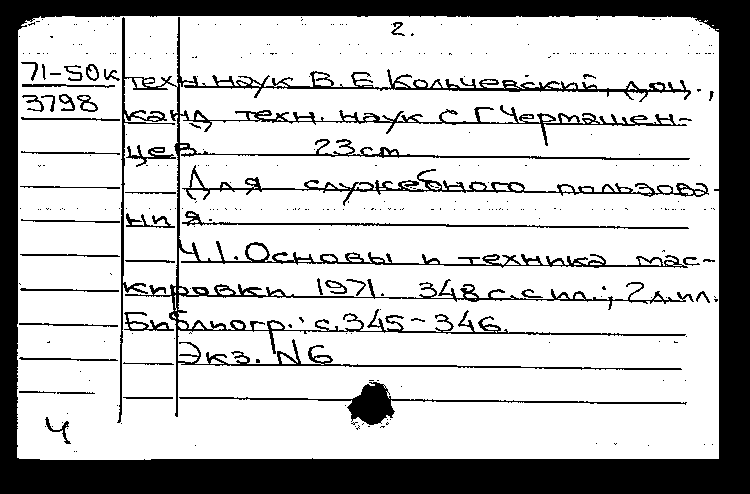 2.
71-50к техн. наук В. Е. Кольчевский, доц.,
3798 канд. техн. наук С. Г. Чермашен-
цев. 23 см
Для служебного пользова-
ния.
Ч. 1. Основы и техника мас-
кировки. 1971. 348 с. с ил.; 2 л. ил.
Библиогр.: с. 345-346.
Экз. N 6
Ч